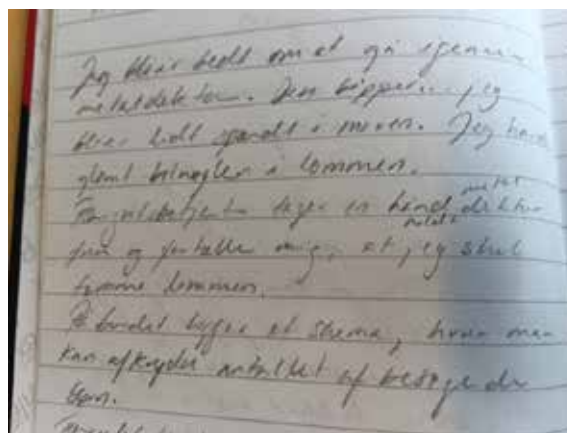 Jeg bliver bedt om at gå igennem
metaldetektoren. Den bipper... jeg
bliver lidt spændt i maven. Jeg havde
glemt bilnøglen i lommen.
Fængselsbetjenten tager en hånd metal detektor
frem og fortæller mig, at jeg skal
tømme lommen.
På bordet ligger et skema, hvor man
kan afkrydse antallet af besøgende
børn.